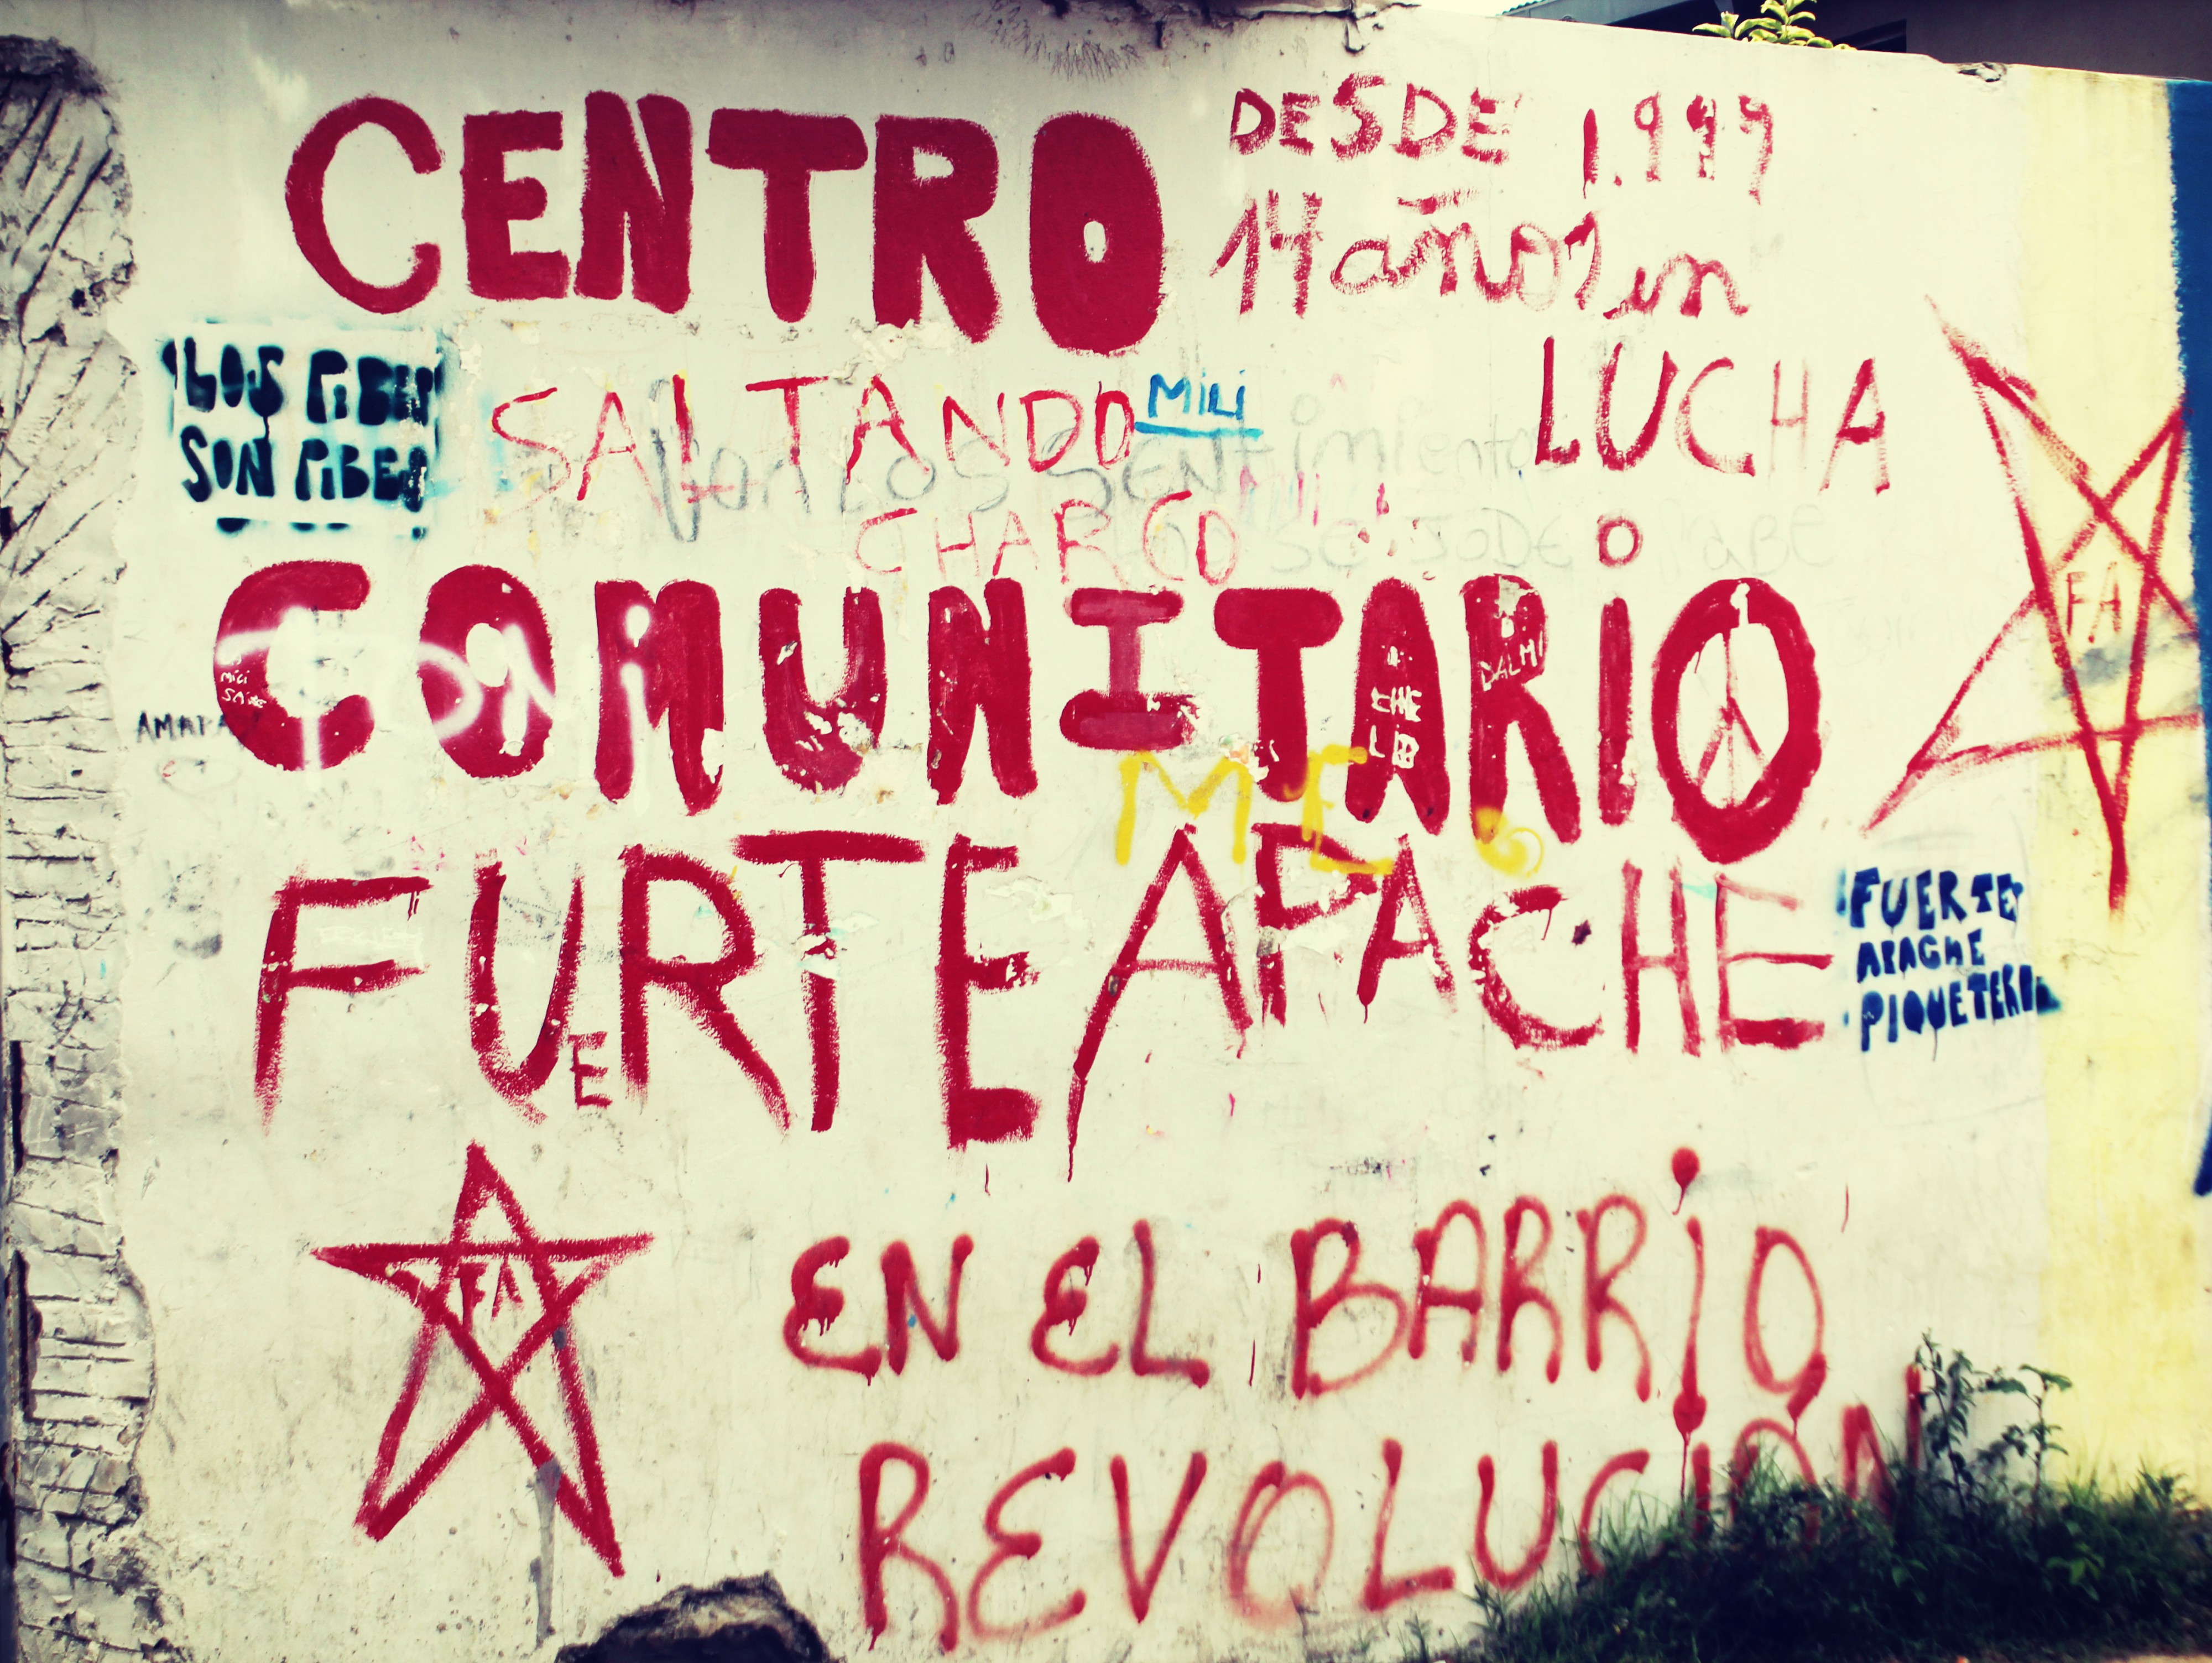 CENTRO
DESDE 1.999
14 años en
LUCHA
LOS PIBES
SON PIBES
SALTANDO
MiLi
CHARCO
CON LOS SENTimiento
SE JODE
COMUNITARiO
TOMi
Mili
AMAPA
CHE
LIB
DALMI
ME
FUERTE APACHE
FUERTE
APACHE
PIQUETERO
FA
FA
EN EL BARRiO
REVOLUCION